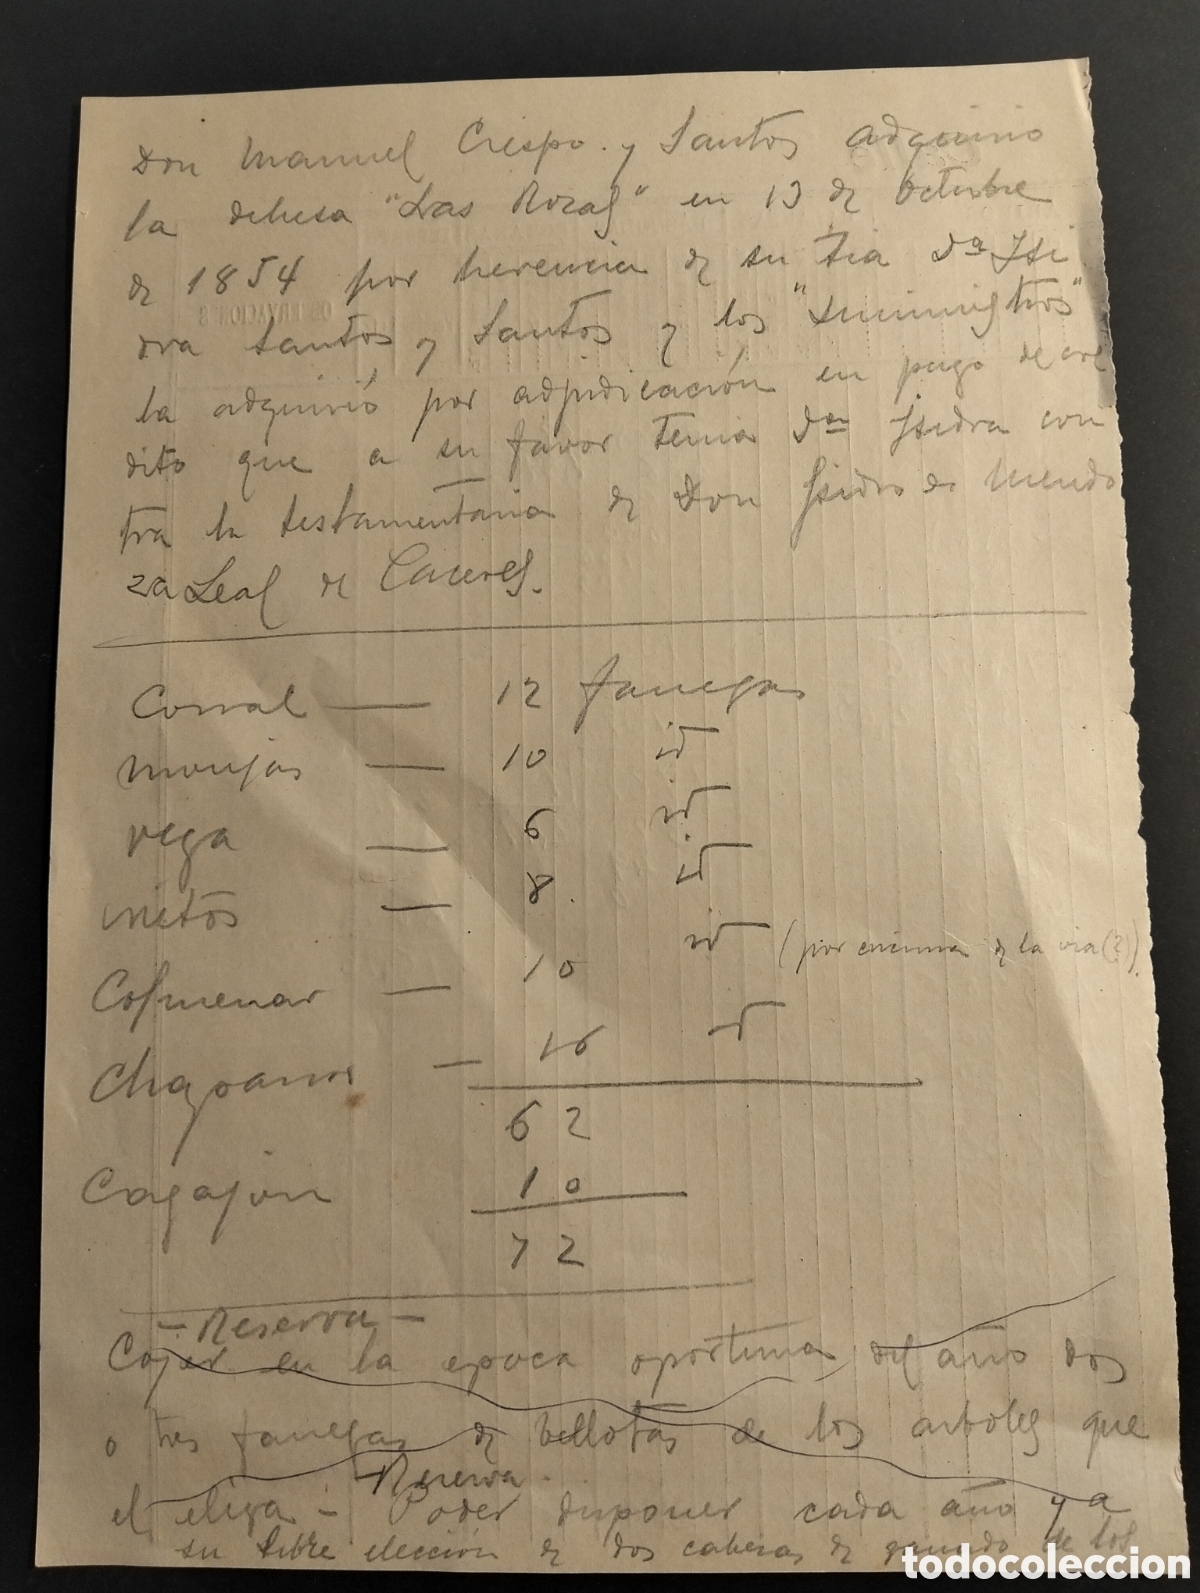 Don Manuel Crespo y Santos adquirio
la dehesa "Las Rozas" en 13 de octubre
de 1854 por herencia de su tia Dª Isi
dra Santos y Santos y los "Suministros"
la adquirió por adjudicación en pago de cre
dito que a su favor tenia Dª Isidra con
tra la testamentaria de Don Isidro de Mendo
za Leal de Caceres.
Corral — 12 fanegas
monjas — 10 id
vega — 6 id
nietos — 8 id
Colmenar — 10 id (por encima de la via(?))
Chaparros — 16 id
62
Cagajon 10
72
- Reserva -
Cojer en la epoca oportuna del año dos
o tres fanegas de bellotas de los arboles que
el elija - Reserva. Poder disponer cada año y a
su libre elección de dos cabezas de ganado de los
OBSERVACIONES
todocoleccion